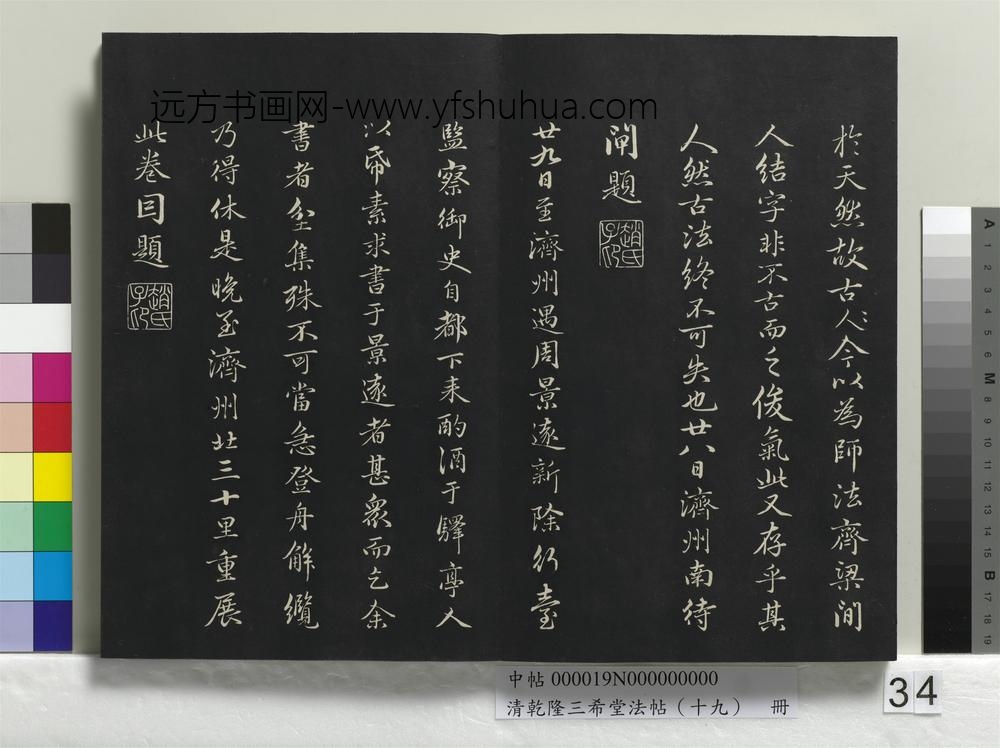 远方书画网-www.yfshuhua.com
於天然故古今以為師法齊梁間
人結字非不古而乏俊氣此又存乎其
人然古法終不可失也廿八日濟州南待
閘題
趙氏子印
廿九日至濟州遇周景遠新除行臺
監察御史自都下来酌酒于驛亭人
以帋素求書于景遠者甚眾而乞余
書者坌集殊不可當急登舟解纜
乃得休是晚至濟州北三十里重展
此卷因題
趙氏子印
中帖 000019N000000000
清乾隆三希堂法帖（十九） 冊
34
A 1 2 3 4 5 6 M 8 9 10 11 12 13 14 15 B 17 18 19